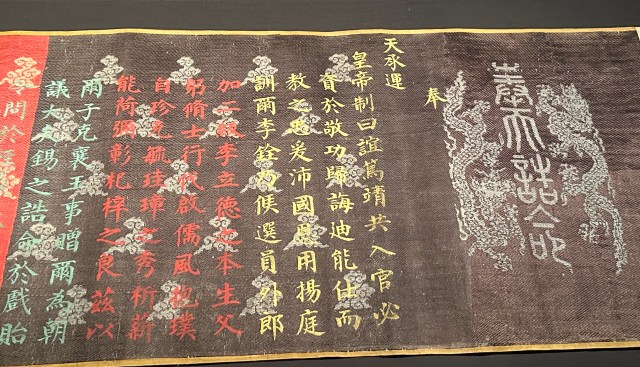 奉天誥命
奉
天承運
皇帝制曰誼篤靖共入官必
資於敬功歸誨迪能仕而
教之忠爰沛國恩用揚庭
訓爾李銓乃候選員外郎
加二級李立德之本生父
躬脩士行代啟儒風抱璞
自珍克毓珪璋之秀析薪
能荷彌彰杞梓之良茲以
爾子克襄王事贈爾為朝
議大夫錫之誥命於戲貽
問於